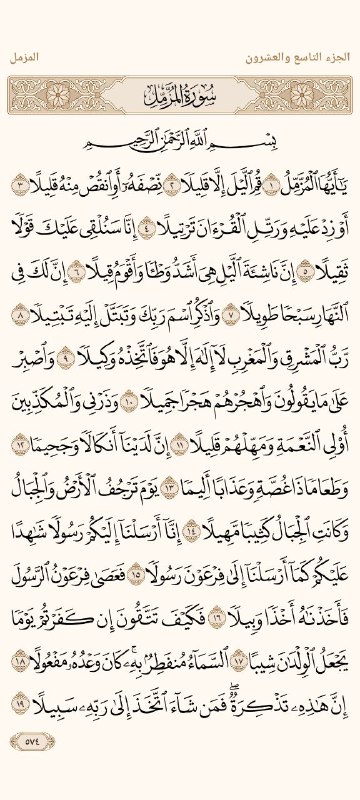 الجزء التاسع والعشرون المزمل
سُورَةُ المُزَّمِّلِ
بِسْمِ اللَّهِ الرَّحْمَٰنِ الرَّحِيمِ
يَٰٓأَيُّهَا ٱلْمُزَّمِّلُ ١ قُمِ ٱلَّيْلَ إِلَّا قَلِيلًا ٢ نِّصْفَهُۥٓ أَوِ ٱنقُصْ مِنْهُ قَلِيلًا ٣
أَوْ زِدْ عَلَيْهِ وَرَتِّلِ ٱلْقُرْءَانَ تَرْتِيلًا ٤ إِنَّا سَنُلْقِى عَلَيْكَ قَوْلًا
ثَقِيلًا ٥ إِنَّ نَاشِئَةَ ٱلَّيْلِ هِىَ أَشَدُّ وَطْـًٔا وَأَقْوَمُ قِيلًا ٦ إِنَّ لَكَ فِى
ٱلنَّهَارِ سَبْحًا طَوِيلًا ٧ وَٱذْكُرِ ٱسْمَ رَبِّكَ وَتَبَتَّلْ إِلَيْهِ تَبْتِيلًا ٨
رَّبُّ ٱلْمَشْرِقِ وَٱلْمَغْرِبِ لَآ إِلَٰهَ إِلَّا هُوَ فَٱتَّخِذْهُ وَكِيلًا ٩ وَٱصْبِرْ
عَلَىٰ مَا يَقُولُونَ وَٱهْجُرْهُمْ هَجْرًا جَمِيلًا ١٠ وَذَرْنِى وَٱلْمُكَذِّبِينَ
أُو۟لِى ٱلنَّعْمَةِ وَمَهِّلْهُمْ قَلِيلًا ١١ إِنَّ لَدَيْنَآ أَنكَالًا وَجَحِيمًا ١٢
وَطَعَامًا ذَا غُصَّةٍ وَعَذَابًا أَلِيمًا ١٣ يَوْمَ تَرْجُفُ ٱلْأَرْضُ وَٱلْجِبَالُ
وَكَانَتِ ٱلْجِبَالُ كَثِيبًا مَّهِيلًا ١٤ إِنَّآ أَرْسَلْنَآ إِلَيْكُمْ رَسُولًا شَٰهِدًا
عَلَيْكُمْ كَمَآ أَرْسَلْنَآ إِلَىٰ فِرْعَوْنَ رَسُولًا ١٥ فَعَصَىٰ فِرْعَوْنُ ٱلرَّسُولَ
فَأَخَذْنَٰهُ أَخْذًا وَبِيلًا ١٦ فَكَيْفَ تَتَّقُونَ إِن كَفَرْتُمْ يَوْمًا
يَجْعَلُ ٱلْوِلْدَٰنَ شِيبًا ١٧ ٱلسَّمَآءُ مُنفَطِرٌۢ بِهِۦ ۚ كَانَ وَعْدُهُۥ مَفْعُولًا ١٨
إِنَّ هَٰذِهِۦ تَذْكِرَةٌ ۖ فَمَن شَآءَ ٱتَّخَذَ إِلَىٰ رَبِّهِۦ سَبِيلًا ١٩
٥٧٤